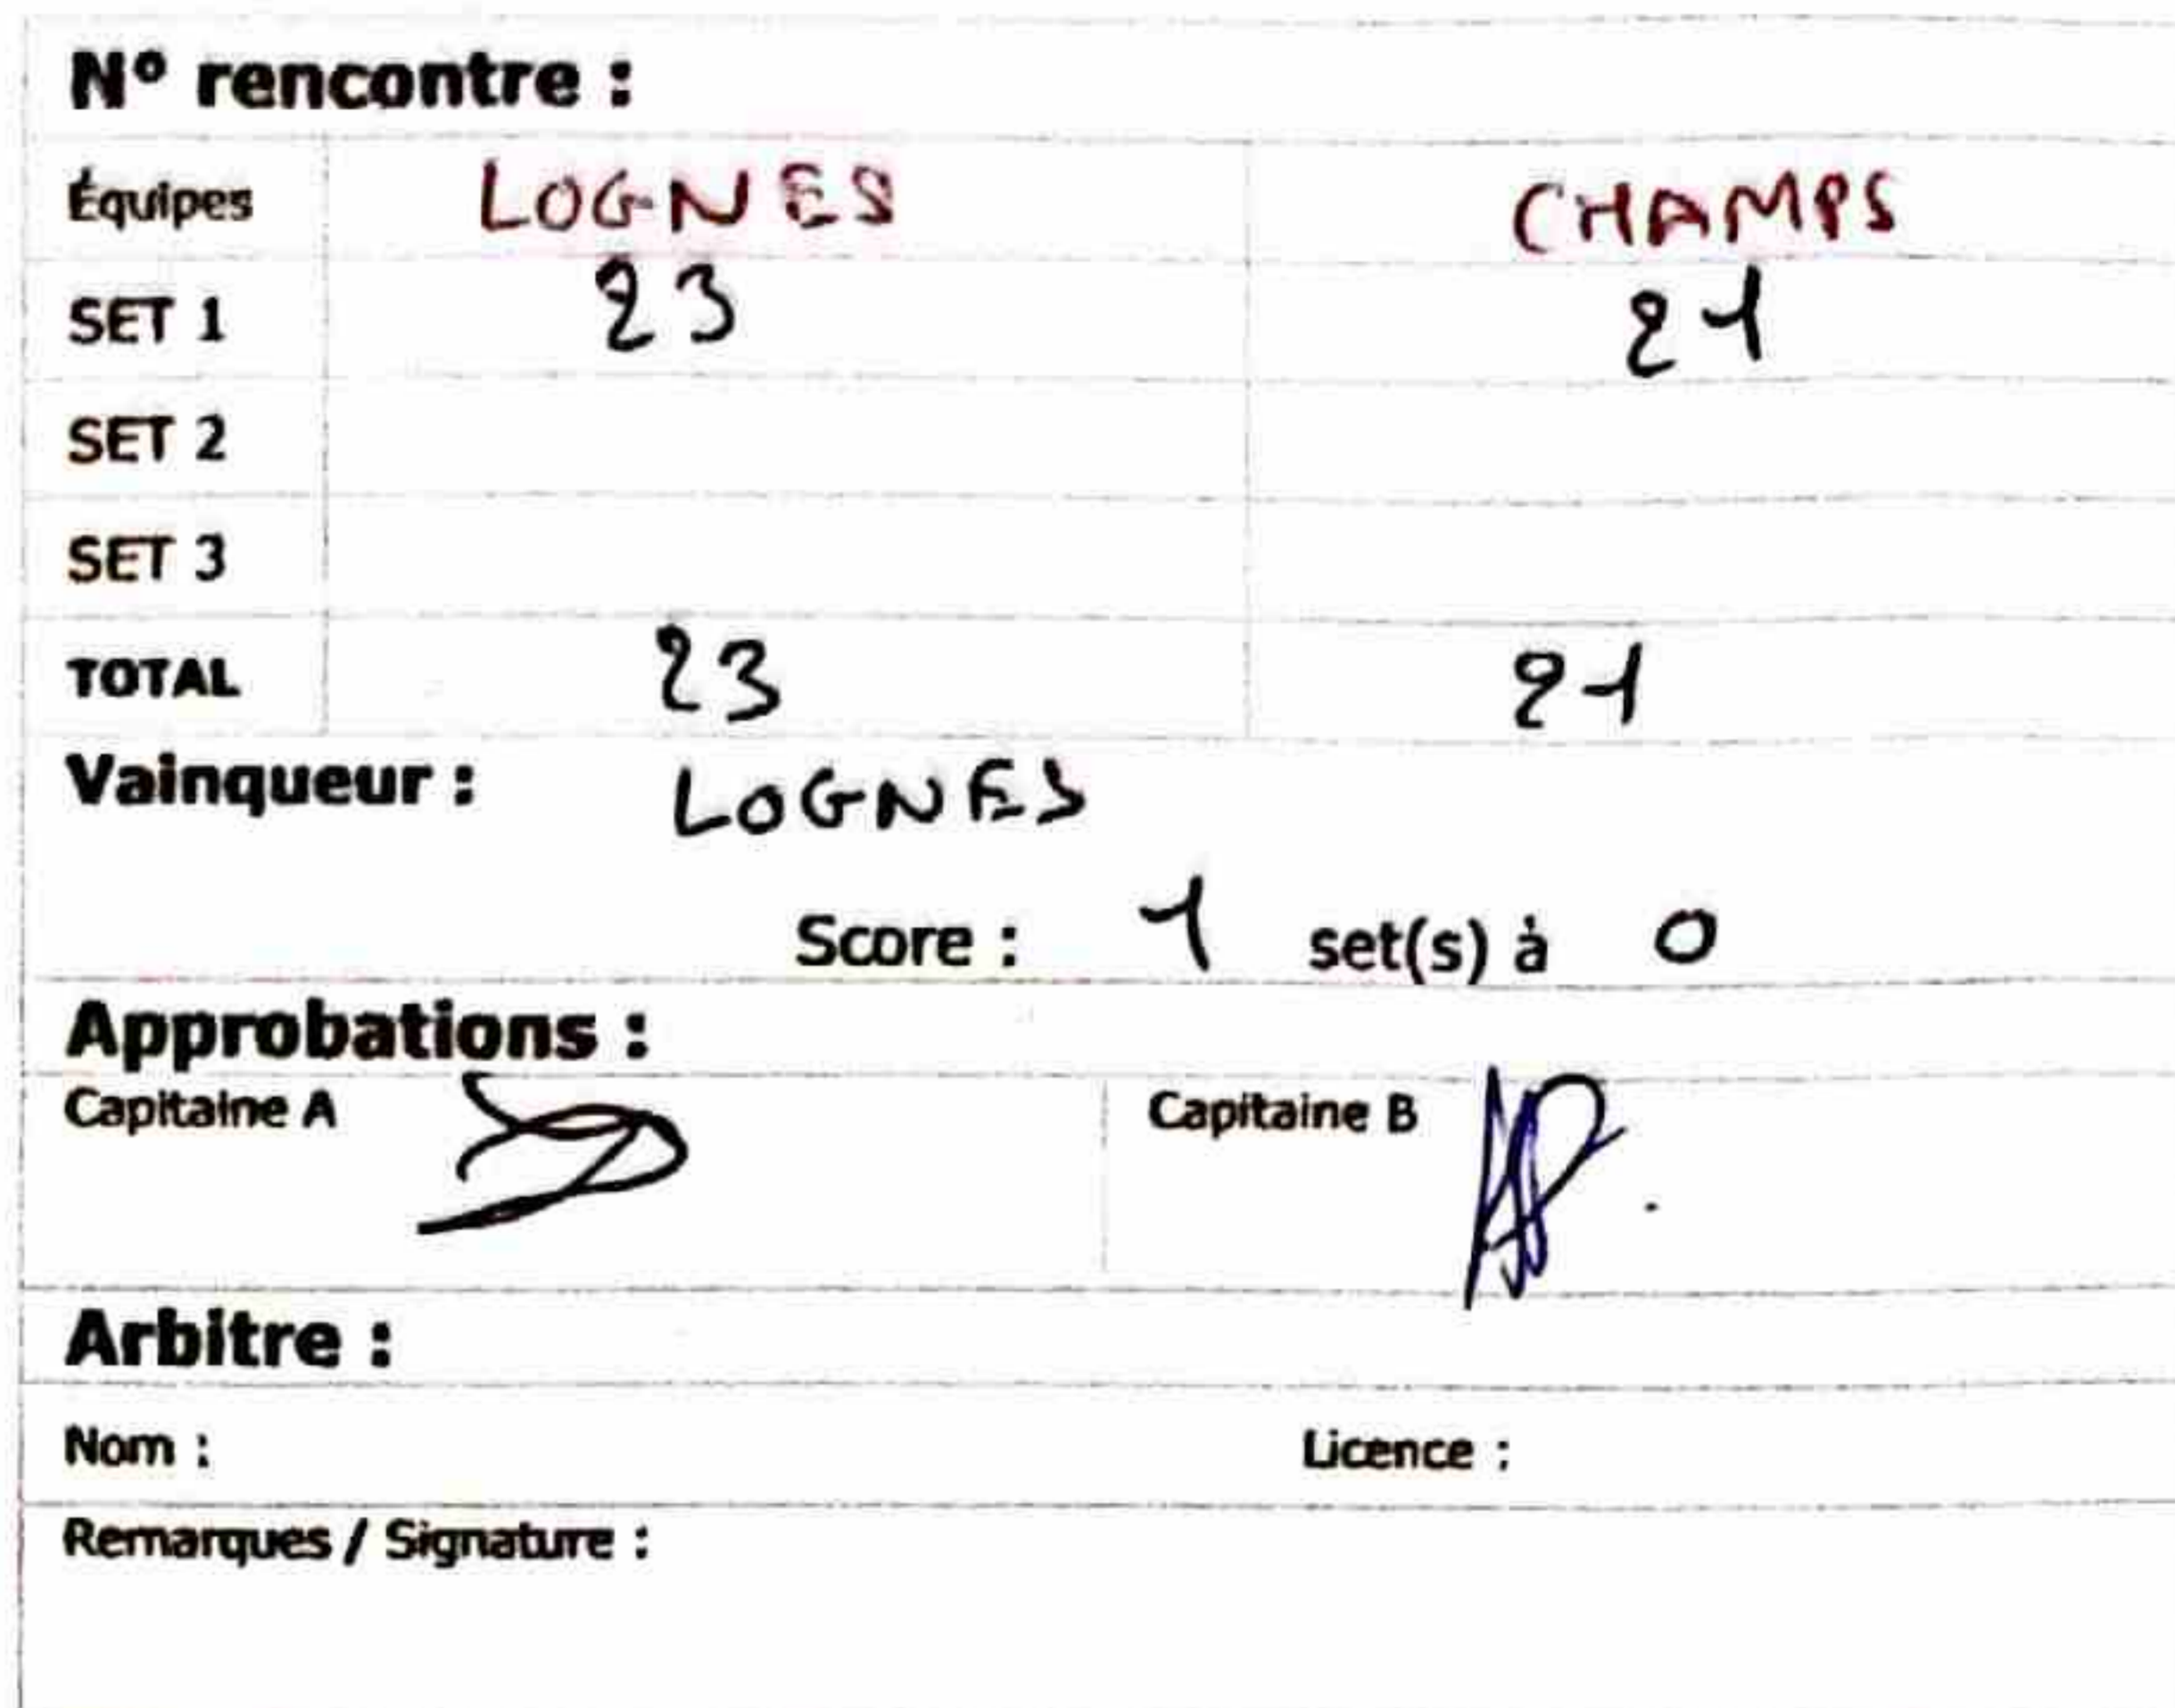 N° rencontre :
Équipes LOGNES CHAMPS
SET 1 23 21
SET 2
SET 3
TOTAL 23 21
Vainqueur : LOGNES
Score : 1 set(s) à 0
Approbations :
Capitaine A Capitaine B
Arbitre :
Nom : Licence :
Remarques / Signature :